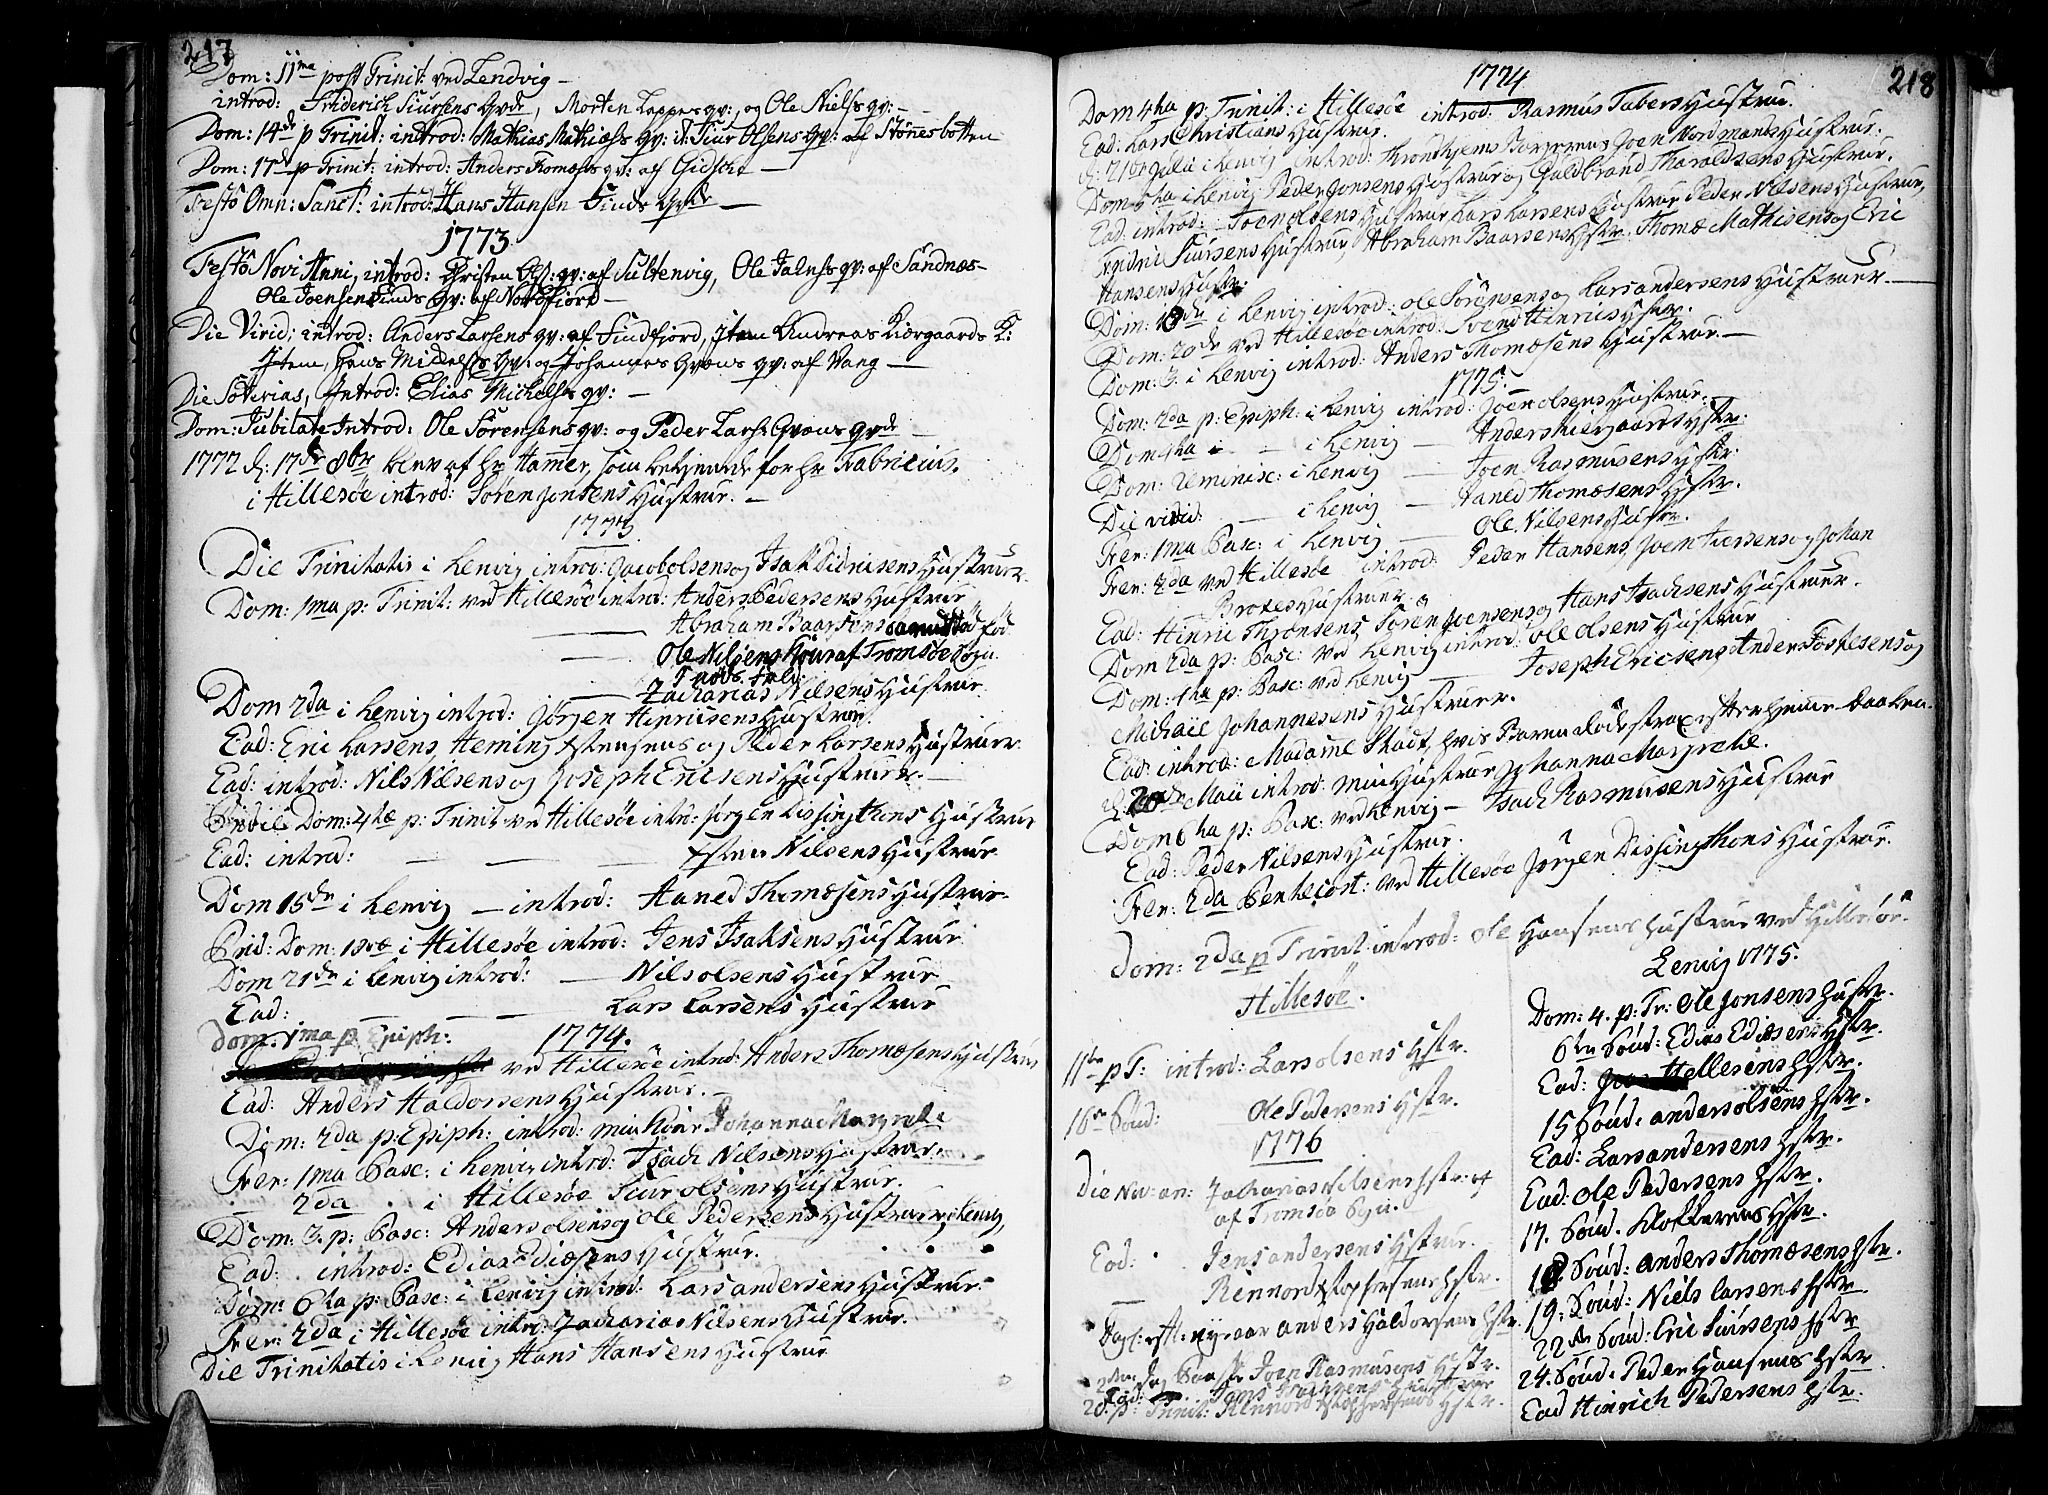 217
Dom: 11ma post Trinit: ved Lendvig –
introd: Friderich Siursens Qvde, Morten Lappes qv:, og Ole Niels qv: –
Dom: 14de p Trinit: introd: Mathias Mathiæss qv: it: Siur Olsens qv: af Stönesbotten
Dom: 17de p Trinit: introd: Anders Tomæses qv: af Gidsche –
Festo Omn: Sanct: introd: Hans Hansen Finds Qvde –
1773
Festo Novi Anni, introd: Christen Ols: qv: af Sultenvig, Ole Jalnss qv: af Sandnæs –
Ole Joensen Finds qv: af Nordfjord –
Die Virid: introd: Anders Larsens qv: af Findfjord, Item Andreas Kiergaards K:
Item, Hans Mickels qv: og Johannes Qvæns qv: af Vang –
Die Soterias, Introd: Elias Michelss qv: –
Dom: Jubilate Introd: Ole Sörensens qv: og Peder Lars: Qvæns qvde –
1772 d: 17de 8br blev af hr Hammer, som betjente for hr Fabricius.
i Hillesöe introd: Sören Jonsens Hustrue. –
1773
Die Trinitatis i Lenvig introd: Jacob Olsens og Isak Didrisens Hustruer
Dom: 1ma p: Trinit: ved Hillesöe introd: Anders Pedersens Hustrue
Abraham Baarsens
Ole Nilsens Kone af Tromsöe Sogn
Zacharias Nilsens Hustrue
Dom 2da i Lenvig introd: Jörgen Hinricsens Hustrue.
Ead: Eric Larsens, Heming Estensens og Peder Larsens Hustruer
Ead: introd: Nils Nilsens og Joseph Ericsens Hustruer. –
Dom: 4tæ p: Trinit ved Hillesöe intr: Jörgen Dissingthons Hustrue
Ead: introd: – – – Esten Nilsens Hustrue
Dom 15de i Lenvig – introd: Haned Thomæsens Hustrue
Prid: Dom: 18væ i Hillesöe introd: Jens Isaksens Hustrue
Dom 21de i Lenvig introd: – Nils Olsens Hustrue
Ead: – – – Lars Larsens Hustrue
Dom: 1ma p. Epiph: 1774.
ved Hillesöe introd: Anders Thomæsens Hustrue
Ead: Anders Haldorsens Hustrue. –
Dom: 2da p: Epiph: introd: min Kone Johanna Margrete
Fer: 1ma Pasc: i Lenvig introd: Isach Nilsens Hustrue.
2da . i Hillesöe Siur Olsens Hustrue.
Dom: 3. p: Pasc: Anders Olsens og Ole Pedersens Hustruer i Lenvig,
Ead: . introd: Edias Ediæsens Hustrue.
Dom: 6ta p: Pasc: i Lenvig introd: Lars Andersens Hustrue
Fer: 2da i Hillesöe introd: Zacharias Nilsens Hustrue.
Die Trinitatis i Lenvig Hans Hansens Hustrue
218
1774
Dom 4ta p: Trinit: i Hillesöe introd: Rasmus Tabers Hustrue.
Ead: Lars Christians Hustrue.
d: 21de Julii i Lenvig introd: Trondhjems Borgerens Joen Nordmands Hustrue.
Dom 9ta i Lenvig Peder Jonsens Hustrue og Guldbrand Tharaldsens Hustrue.
Ead: introd: Joen Olsens Hustrue Lars Larsens Hustrue Peder Nilsens Hustrue,
Fridric Siursens Hustrue, Abraham Baarsens Hstr. Thomæ Mathisens og Eric
Hansens Hustr.
Dom: 18de i Lenvig introd: Ole Sörensens og Lars Andersens Hustruer. –
Dom: 20de ved Hillesöe introd: Svend Hinrics Hstr.
Dom: 3. i Lenvig introd: Anders Thomæsens Hustrue. –
1775. –
Dom: 2da p: Epiph: i Lenvig introd: Joen Olsens Hustrue.
Dom 4ta – i Lenvig – Anders Kiergaards Hstr:
Dom: Reminisc: i Lenvig – Joen Rasmusens Hstr:
Die virid: – i Lenvig – Haned Thomæsens Hstr.
Fer: 1ma Pasc: i Lenvig – Ole Nilsens Hustr.
Fer: 2da ved Hillesöe introd: Peder Hansens, Joen Iversens og Johan
Brodes Hustruer.
Ead: Hinric Thronsens, Sören Joensens og Hans Isachsens Hustruer.
Dom 2da p: Pasc: ved Lenvig introd: Ole Olsens Hustrue
Dom: 4ta p: Pasc: ved Lenvig – Joseph Ericsens, Anders Tostesens og
Michael Johannesens Hustruer.
Ead: introd: Madame Stadt, hvis Barn döde strax efter hiemme-daaben.
d: 20de Maii introd: min Hustrue Johanna Margrete.
Dom 6ta p: Pasc: ved Lenvig – Isach Rasmusens Hustrue
Ead: Peder Nilsens Hustrue.
Fer: 2da Pentecost: ved Hillesöe Jörgen Dissingthons Hustrue.
Dom: 2da p Trinit: introd: Ole Hansens Hustrue ved Hillesöe.
Hillesöe.
11te p T: introd: Lars Olsens Hstr.
16de Sönd: Ole Pedersens Hstr.
1776
Die Nov: an: Zacharias Nilsens Hstr: af
af Tromsöe Sgn.
Ead: . Jens Andersens Hstrue.
– Rennord Hstr.
Dag: eft: nyeaar Anders Haldorsens Hstr.
2den dag Paaske Joen Rasmusens Hstr.
Ead: Hustrue
2d. p: Trinit: Rennord Hstr.
Lenvig 1775.
Dom: 4. p: Tr: Ole Jonsens Hustr.
6te Sönd: Edias Ediæsens Hstr.
Ead: Hellesens Hstr.
15 Sönd: Anders Olsens Hstr.
Ead: Lars Andersens Hstr.
Ead: Ole Pedersens Hstr.
17. Sönd. Klokkerens Hstr.
18. Sönd: Anders Thomæsens Hstr.
19: Sönd: Niels Larsens Hstr
22de Sönd: Eric Siursens Hstr
24. Sönd: Peder Hansens Hstr
Ead Hinrich Pedersens Hstr.